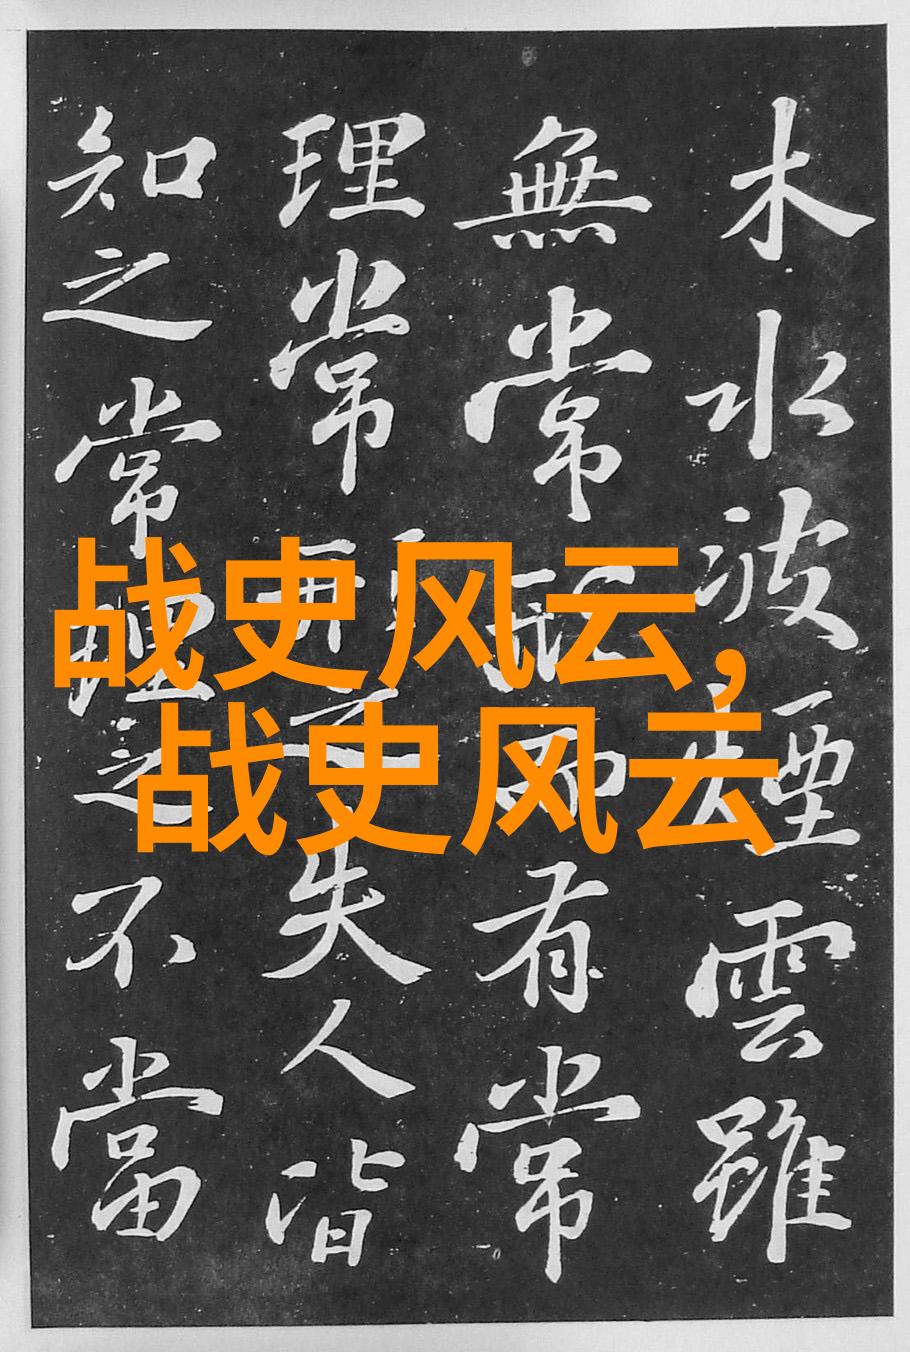 木水波煙雲雖
無常形而有常
理常形之失人皆
知之常理之不當
战史风云,
战史风云